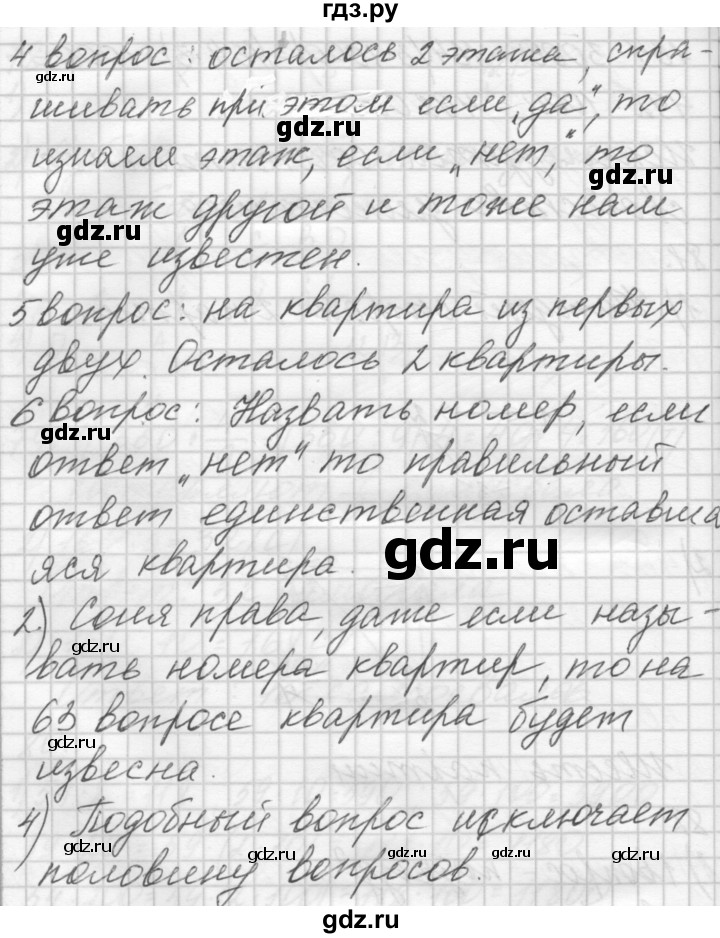 гдз.ру
4 вопрос: осталось 2 этажа, спра-
шивать при этом если „да“, то
изнаем этаж, если „нет,“ то
этаж другой и тоже нам
уже известен.
5 вопрос: на квартира из первых
двух. Осталось 2 квартиры.
6 вопрос: Назвать номер, если
ответ „нет“ то правильный
ответ единственная оставша
яся квартира.
2) Соня права, даже если назы-
вать номера квартир, то на
63 вопросе квартира будет
извесна.
4) Подобный вопрос исключает
половину вопросов.
gdz.ru
gdz.ru
gdz.ru
gdz.ru
gdz.ru
gdz.ru
gdz.ru
gdz.ru
gdz.ru
gdz.ru
gdz.ru
gdz.ru
gdz.ru
gdz.ru